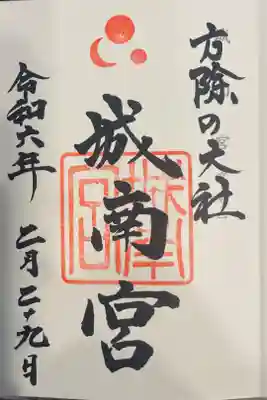 方除の大社
城南宮
城南宮
令和六年 二月二十九日